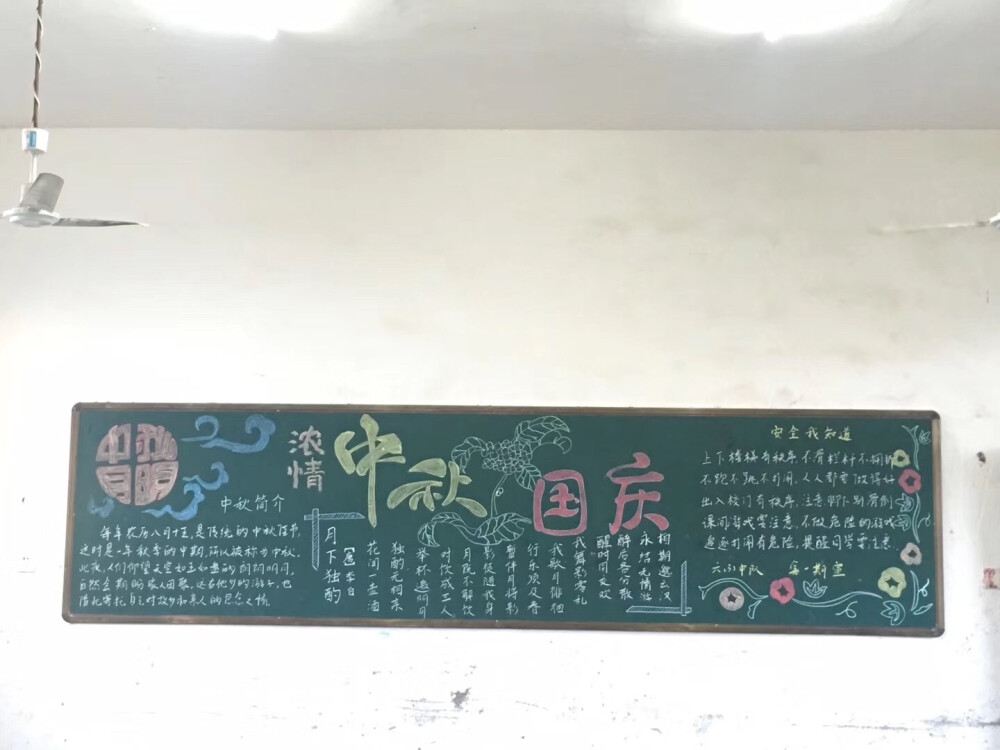 中秋
月明
中秋简介
每年农历八月十五,是传统的中秋佳节,
这时是一年秋季的中期,所以被称为中秋。
此夜,人们仰望天空如玉如盘的朗朗明月,
自然会期盼家人团聚,远在他乡的游子,也
借此寄托自己对故乡和亲人的思念之情。
浓情
中秋
国庆
月下独酌
李白
花间一壶酒
独酌无相亲
举杯邀明月
对饮成三人
月既不解饮
影徒随我身
暂伴月将影
行乐须及春
我歌月徘徊
我舞影零乱
醒时同交欢
醉后各分散
永结无情游
相期邈云汉
安全我知道
上下楼梯有秩序,不滑栏杆不拥挤
不跑不跳不打闹,人人都要做得好
出入校门有秩序,注意脚下别滑倒
课间游戏要注意,不做危险的游戏
追逐打闹有危险,提醒同学要注意。
六(1)中队
第一期宣